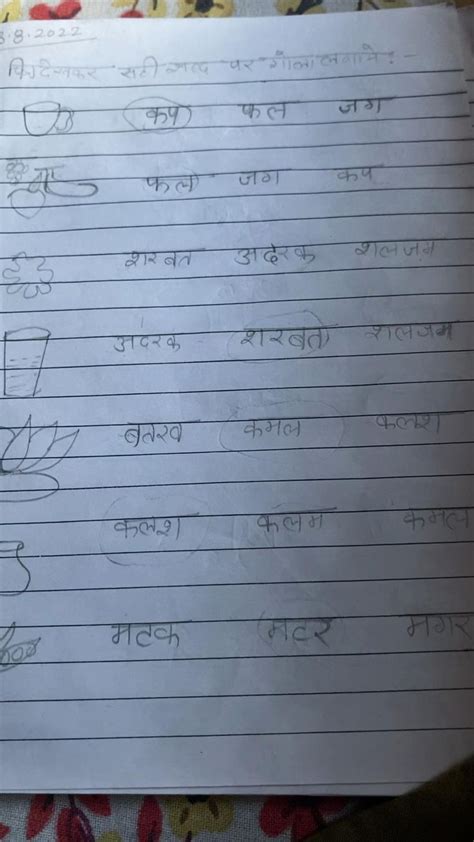 3.8.2022
चित्र देखकर सही शब्द पर गोला लगाये :-
कप फल जग
फल जग कप
शरबत अदरक शलजम
अदरक शरबत शलजम
बतख कमल कलश
कलश कलम कमल
मटक मटर मगर